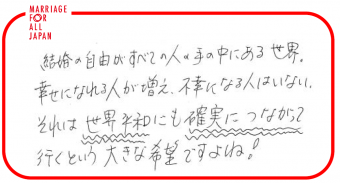 MARRIAGE
FOR
ALL
JAPAN
結婚の自由がすべての人の手の中にある世界。
幸せになれる人が増え、不幸になる人はいない。
それは世界平和にも確実につながって
行くという大きな希望ですよね!